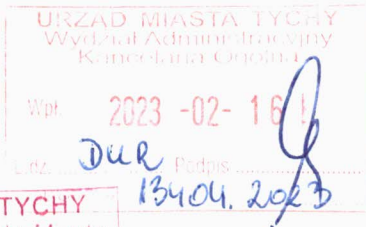 URZĄD MIASTA TYCHY
Wydział Administracyjny
Kancelaria Ogólna
Wpł. 2023 -02- 16
L.dz. DUR Podpis
13404.2023
TYCHY